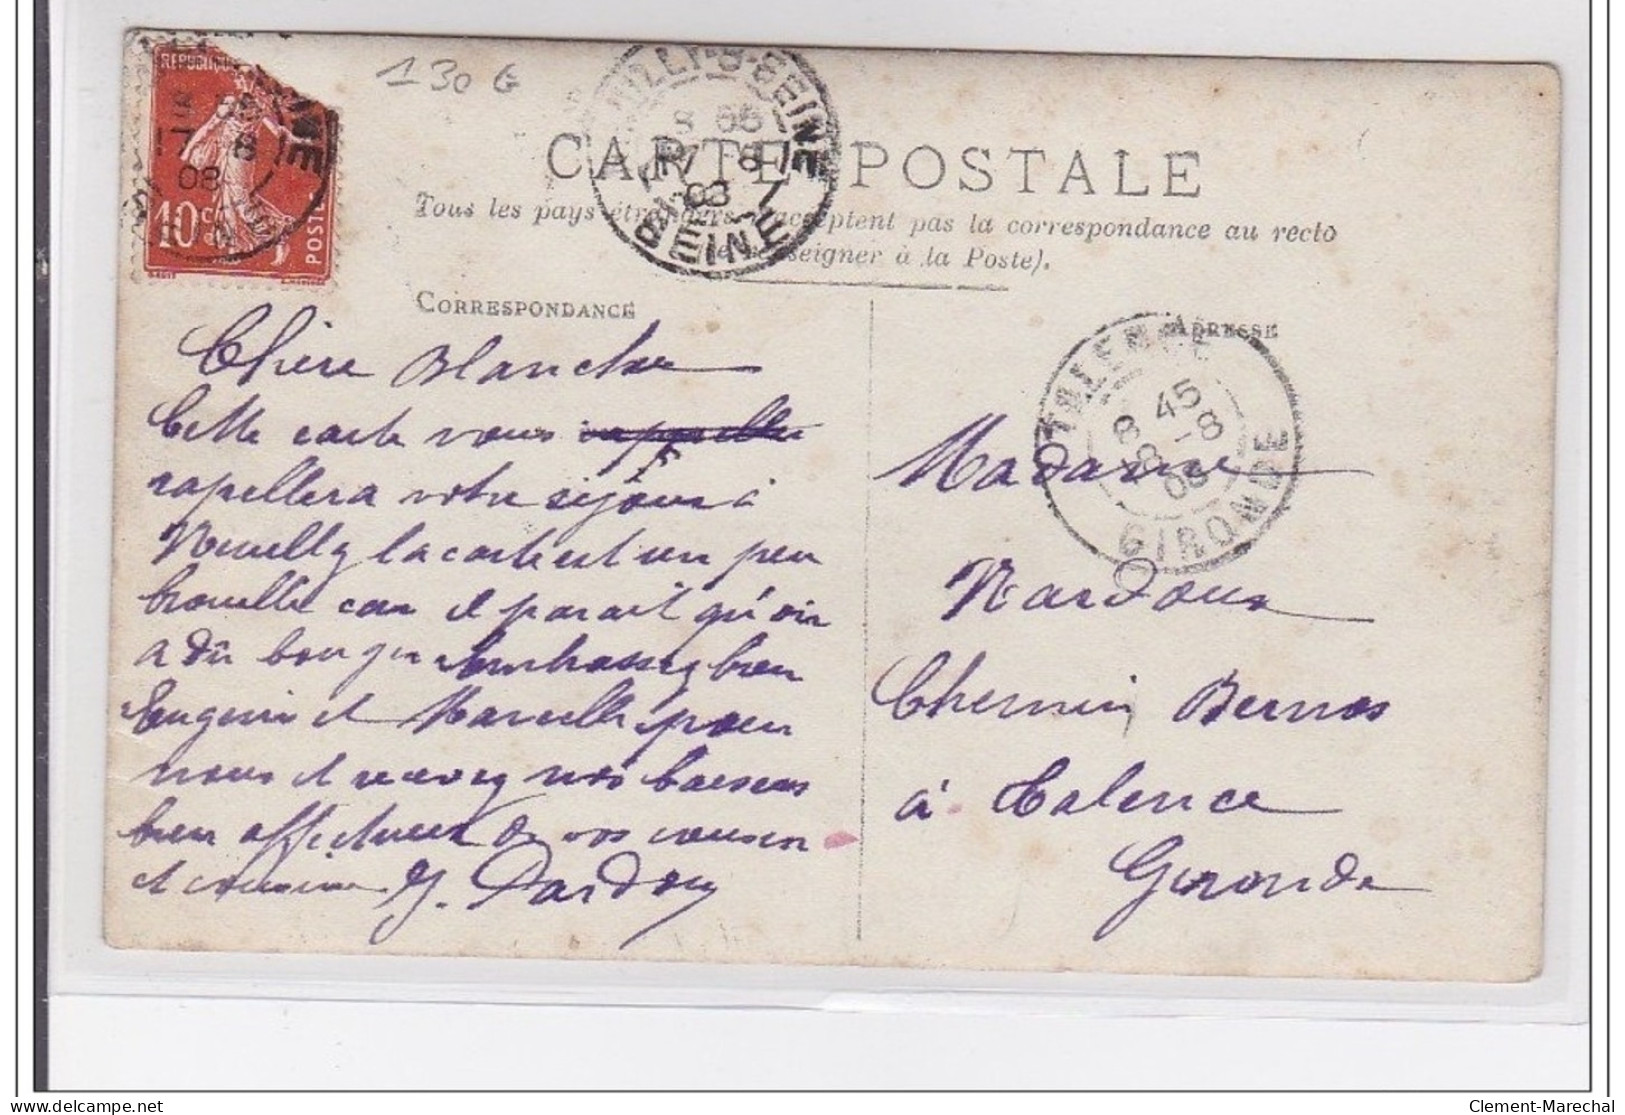 130 G
REPUBLIQUE
10 c
POSTES
17 8
08
SEINE
NEUILLY-S-SEINE
8 55
17 8
08
SEINE
CARTE POSTALE
Tous les pays étrangers n'acceptent pas la correspondance au recto
(Se renseigner à la Poste).
CORRESPONDANCE
ADRESSE
Chère Blanche
Cette carte vous rappellera
rapellera votre séjour à
Neuilly la carte est un peu
brouillé car il parait qu'on
a dû bouger Embrassez bien
Eugenie et Marcelle pour
nous et recevez nos baisers
bien affectueux de vos cousin
et cousine J. Dardouy
TALENCE
8 45
18 -8
08
GIRONDE
Madame
Nardoux
Chemin Bernos
à Talence
Gironde
Clement-Marechal